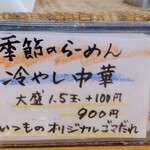 季節のらーめん
冷やし中華
大盛1.5玉+100円
900円
いつものオリジナルゴマだれ